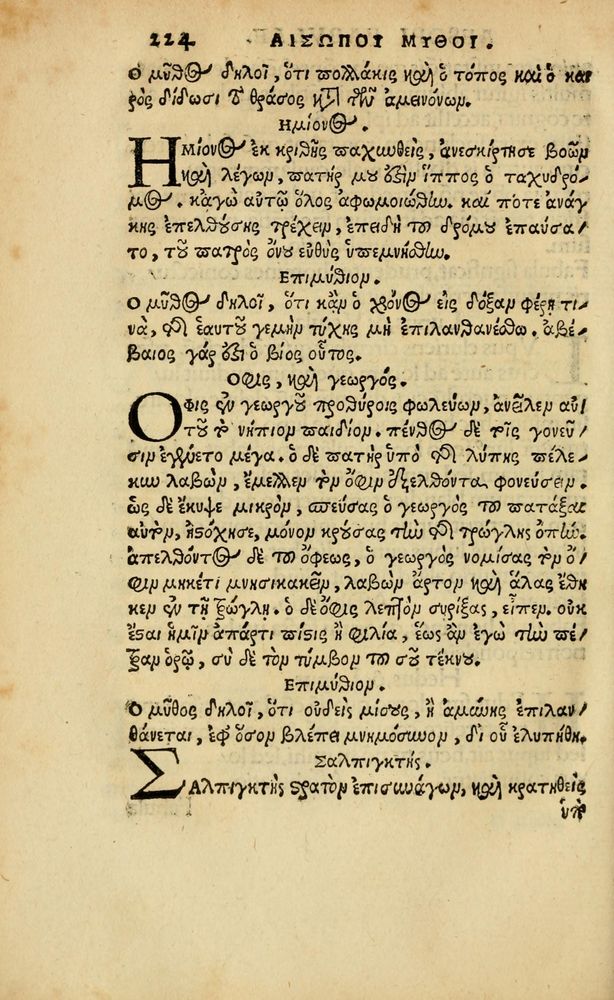 224 ΑΙΣΩΠΟΥ ΜΥΘΟΙ.
Ο μῦθος δηλοῖ, ὅτι πολλάκις καὶ ὁ τόπος καὶ ὁ και
ρὸς δίδωσι τὸ θράσος κατὰ τῶν ἀμεινόνων.
Ημίονος.
ΗΜίονος ἐκ κριθῆς παχυνθεῖς, ἀνεσκίρτησε βοῶν
καὶ λέγων, πατήρ μου ἐστὶν ἵππος ὁ ταχυδρό-
μος. κᾀγὼ αὐτῷ ὅλος ἀφωμοιώθην. καί ποτε ἀνάγ
κης ἐπελθούσης τρέχειν, ἐπειδὴ τοῦ δρόμου ἐπαύσα/
το, τοῦ πατρὸς ὄνου εὐθὺς ὑπεμνήσθην.
Επιμύθιον.
Ο μῦθος δηλοῖ, ὅτι κᾂν ὁ χρόνος εἰς δόξαν φέρῃ τι-
νὰ, τῆς ἑαυτοῦ γεμὴν τύχης μὴ ἐπιλανθανέσθω. ἀβέ/
βαιος γάρ ἐστι ὁ βίος οὗτος.
Οφις, καὶ γεωργός.
ΟΦις ἐν γεωργοῦ προθύροις φωλεύων, ἀνεῖλεν αὐ/
τοῦ τὸ νήπιον παιδίον. πένθος δὲ τοῖς γονεῦ/
σιν ἐγένετο μέγα. ὁ δὲ πατὴρ ὑπὸ τῆς λύπης πέλε-
κυν λαβὼν, ἔμελλεν τὸν ὄφιν ἐξελθόντα φονεύσειν.
ὡς δὲ ἔκυψε μικρὸν, σπεύσας ὁ γεωργὸς τοῦ πατάξαι
αὐτὸν, ἠστόχησε, μόνον κρούσας τὴν τῆς τρώγλης ὀπήν.
ἀπελθόντος δὲ τοῦ ὄφεως, ὁ γεωργὸς νομίσας τὸν ὄ/
φιν μηκέτι μνησικακεῖν, λαβὼν ἄρτον καὶ ἅλας ἔθη
κεν ἐν τῇ τρώγλῃ. ὁ δὲ ὄφις λεπτὸν συρίξας, εἶπεν. οὐκ
ἔσται ἡμῖν ἀπάρτι πίστις ἢ φιλία, ἕως ἂν ἐγὼ τὴν πέ/
τραν ὁρῶ, σὺ δὲ τὸν τύμβον τοῦ σοῦ τέκνου.
Επιμύθιον.
Ο μῦθος δηλοῖ, ὅτι οὐδεὶς μίσους, ἢ ἀμύνης ἐπιλαν/
θάνεται, ἐφ' ὅσον βλέπει μνημόσυνον, δι οὗ ἐλυπήθη.
Σαλπιγκτής.
ΣΑλπιγκτὴς στρατὸν ἐπισυνάγων, καὶ κρατηθεὶς
ὑπὸ